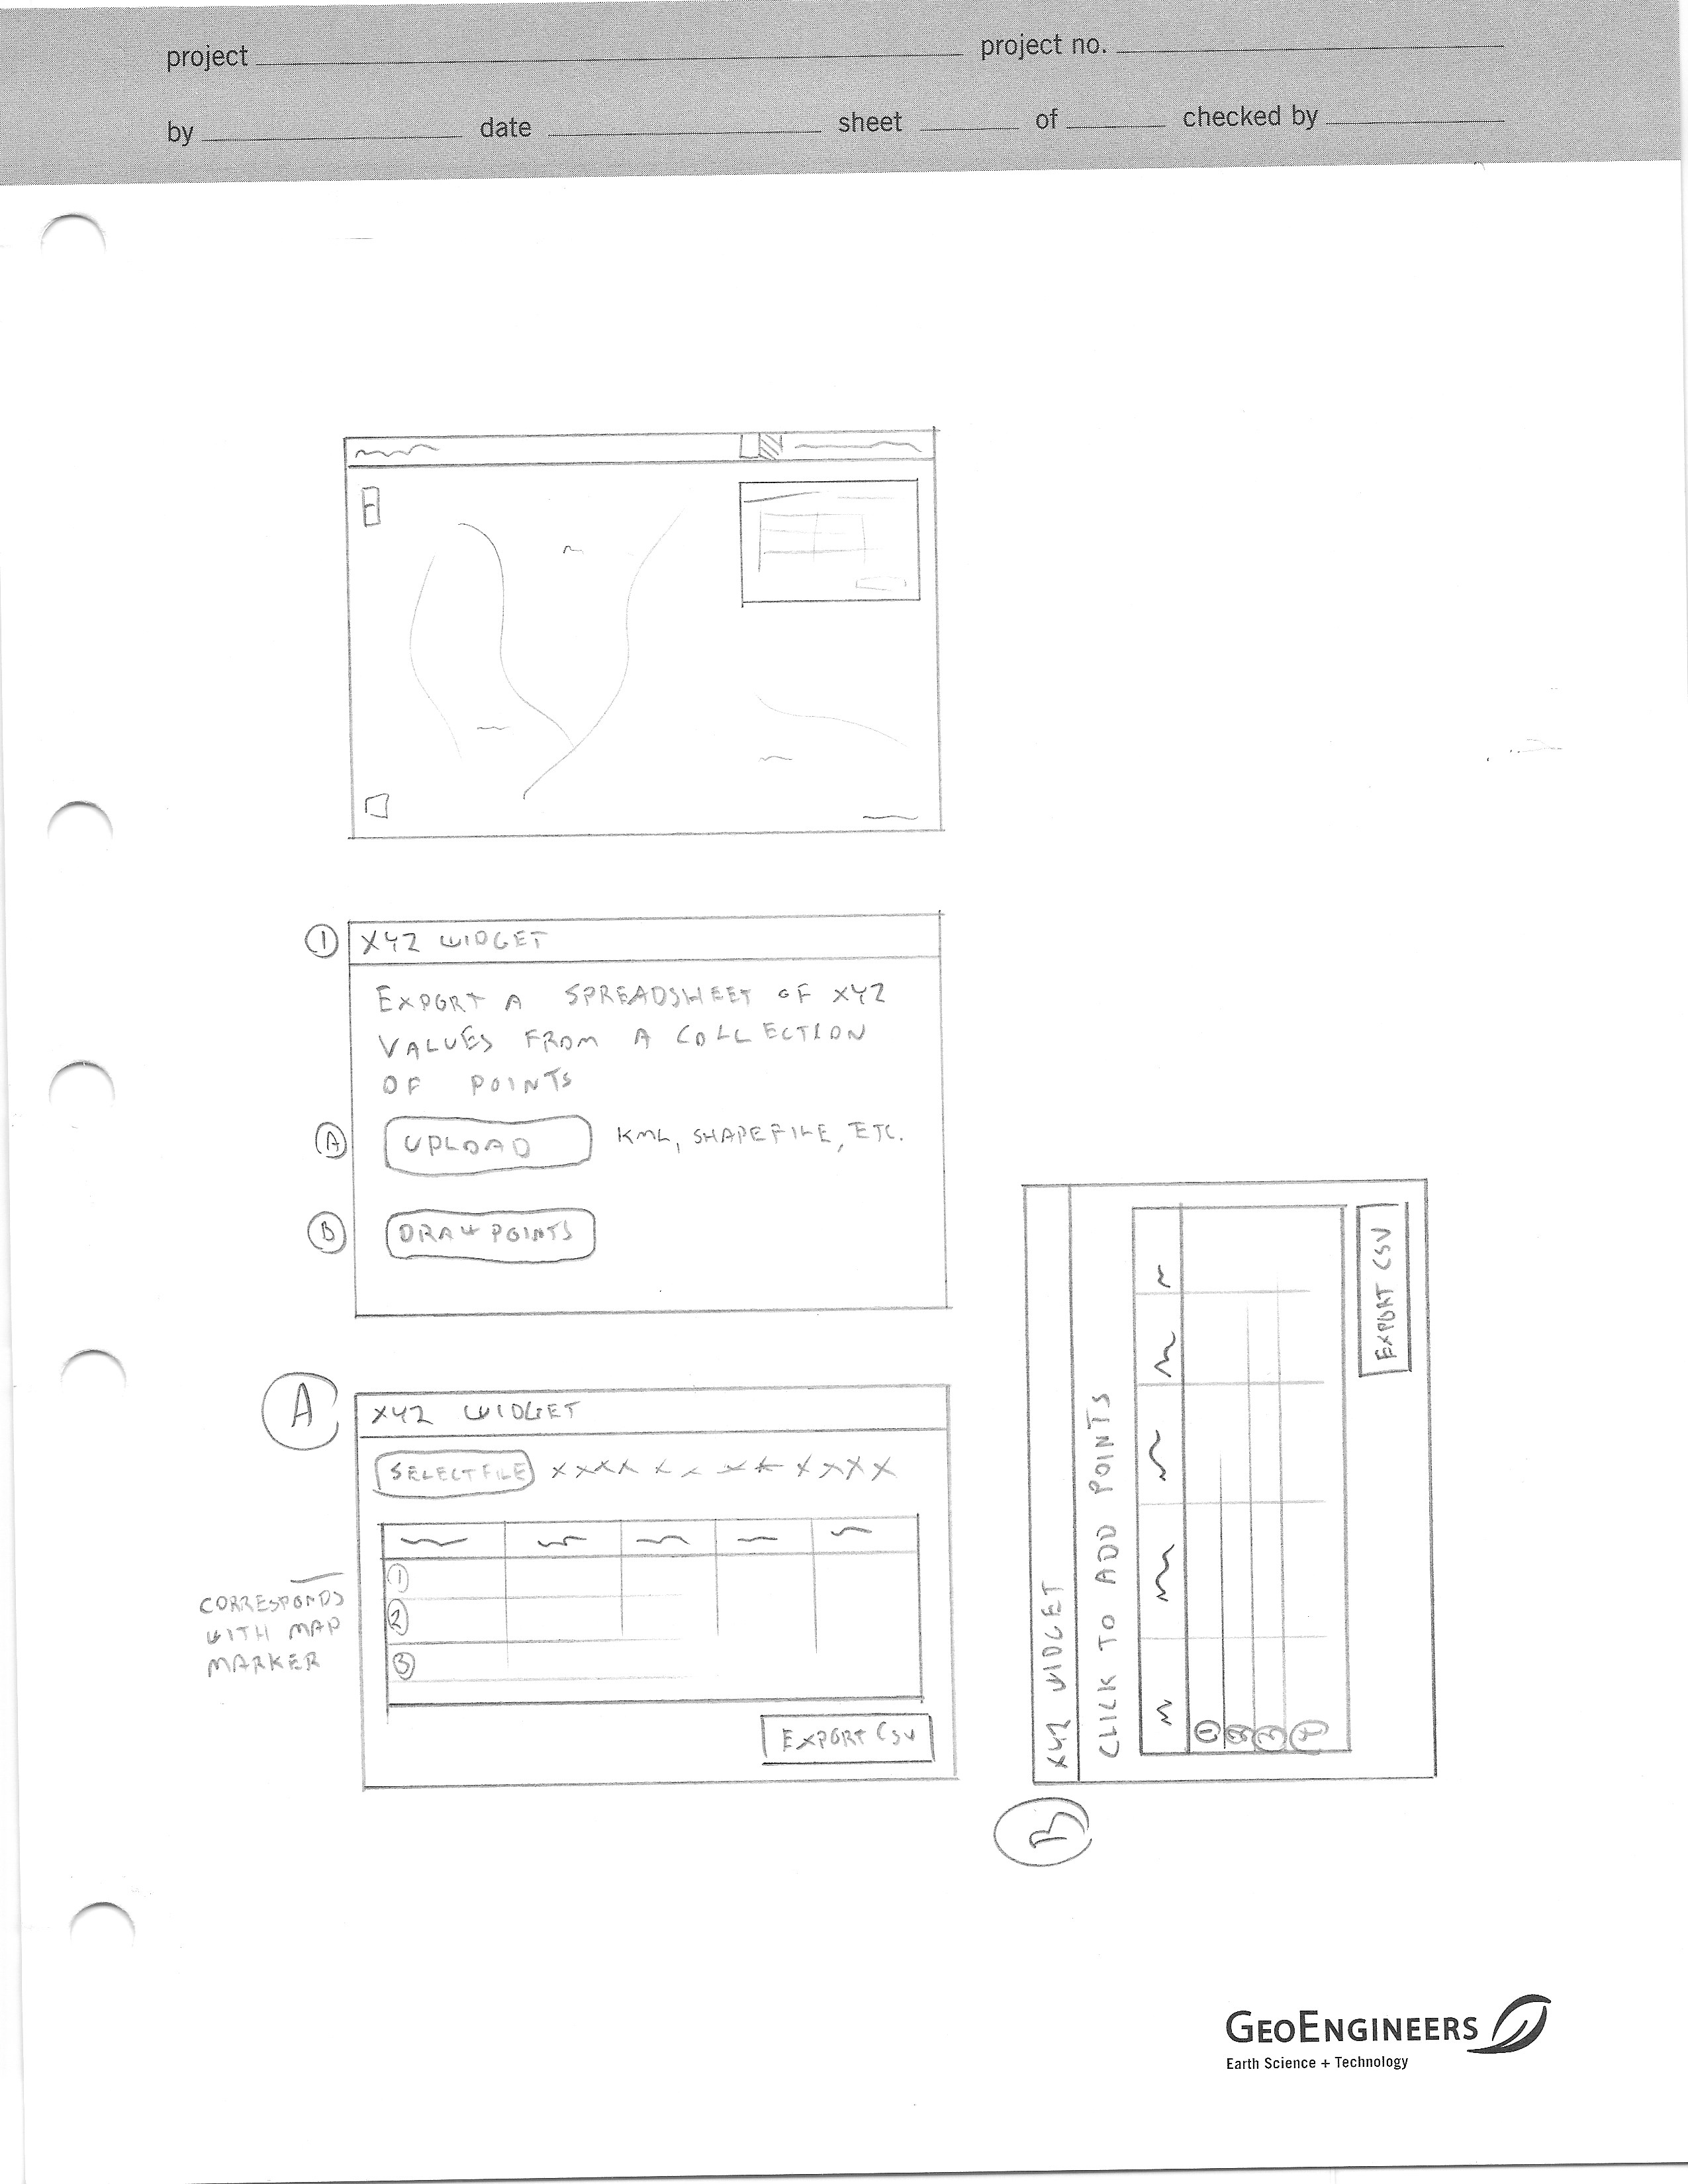 project project no.
by date sheet of checked by
1 XYZ WIDGET
EXPORT A SPREADSHEET OF XYZ
VALUES FROM A COLLECTION
OF POINTS
A UPLOAD KML, SHAPEFILE, ETC.
B DRAW POINTS
A XYZ WIDGET
SELECT FILE XXXX XX XX XXXX
1
2
3
CORRESPONDS
WITH MAP
MARKER
EXPORT CSV
B XYZ WIDGET
CLICK TO ADD POINTS
1
2
3
4
EXPORT CSV
GEOENGINEERS
Earth Science + Technology